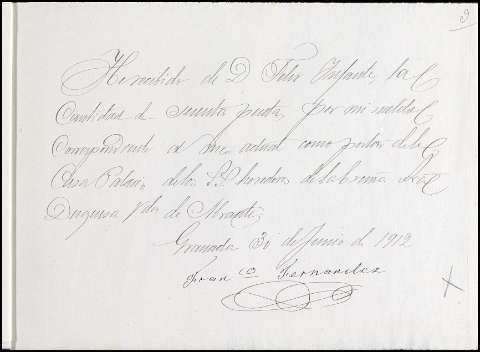 9
He recibido de D. Felix Infante, la
Cantidad de sesenta pesetas, por mi sueldo
Correspondiente al mes actual como portero de la
Casa Palacio de los herederos de la Excma Sra
Duquesa Vda de Abrantes.
Granada 30 de Junio de 1912
Fran co Fernandez